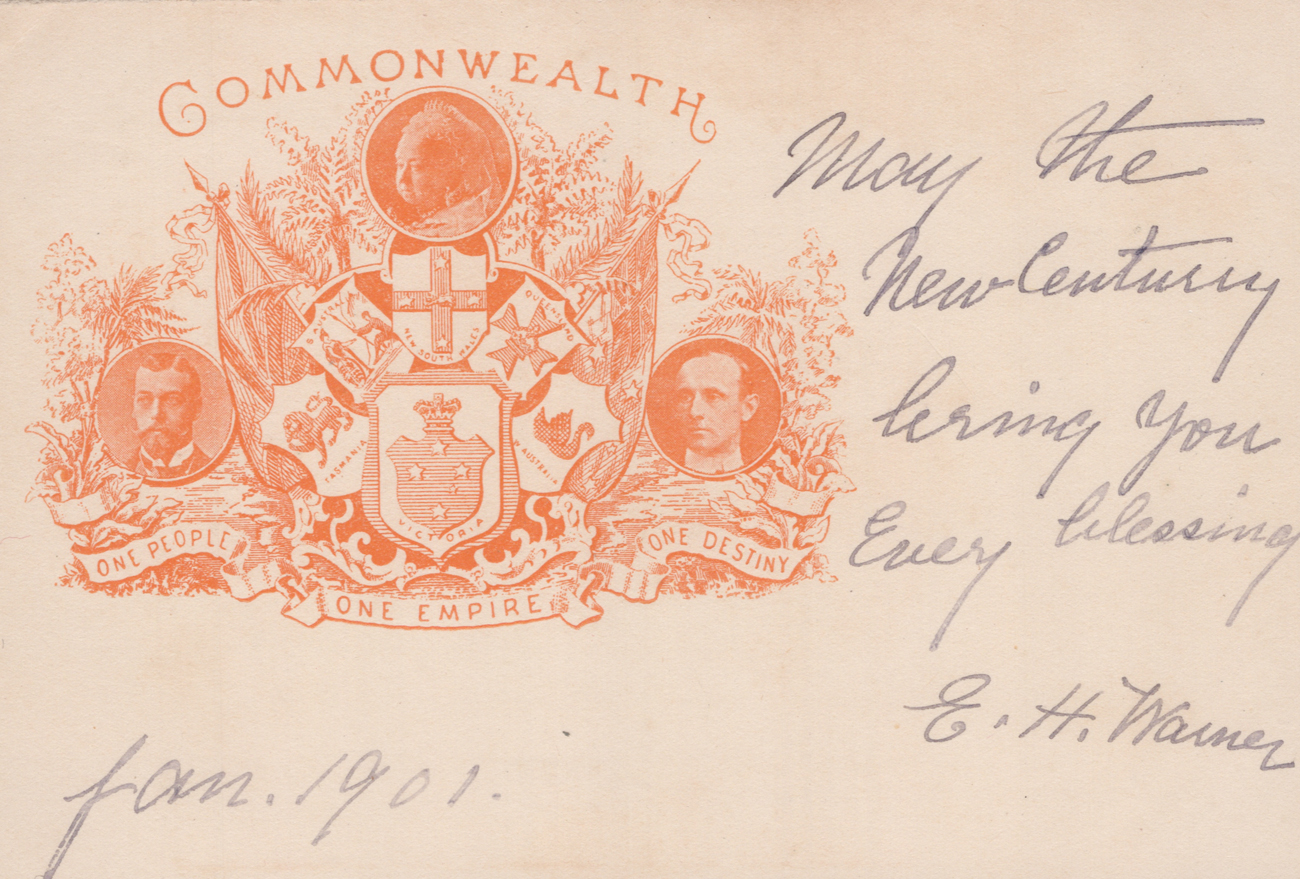 COMMONWEALTH
S. AUSTRALIA
NEW SOUTH WALES
QUEENSLAND
TASMANIA
VICTORIA
W. AUSTRALIA
ONE PEOPLE
ONE DESTINY
ONE EMPIRE
May the
New Century
bring You
Every blessing
E. H. Warner
Jan. 1901.